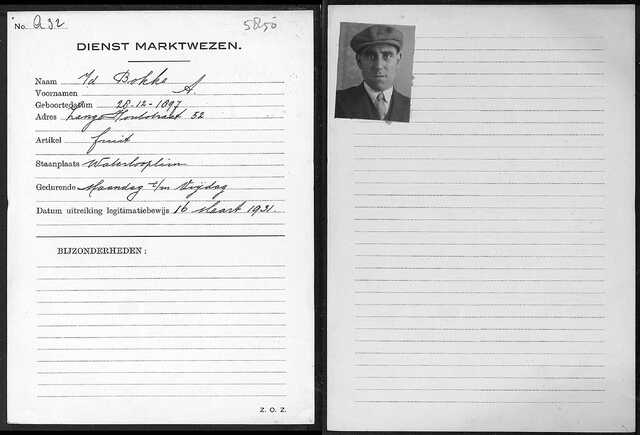 No. Q 32 5850
DIENST MARKTWEZEN.
Naam Id Bokke
Voornamen A.
Geboortedatum 28-12-1897
Adres Lange Houtstraat 52
Artikel fruit
Staanplaats Waterlooplein
Gedurende Maandag t/m Vrijdag
Datum uitreiking legitimatiebewijs 16 Maart 1931.
BIJZONDERHEDEN :
Z. O. Z.